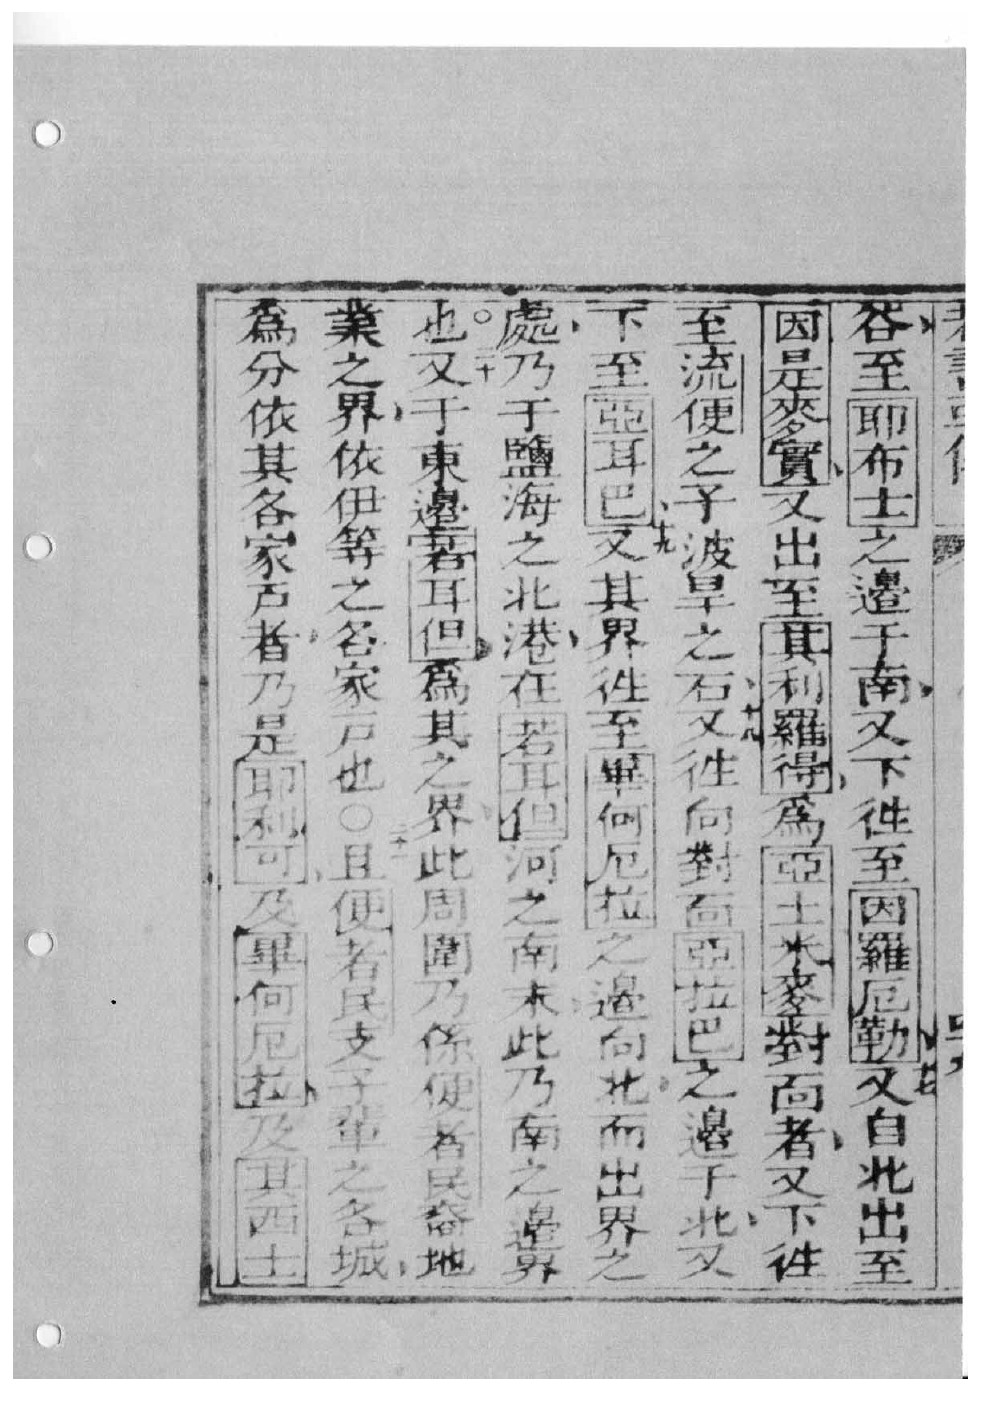 谷至耶布士之邊于南又下徃至因羅厄勒又自北出至
十七
因是麥實又出至其利羅得爲亞土米麥對面者又下徃
至流便之子波旱之石又徃向對面亞拉巴之邊于北又
十八
下至亞耳巴又其界徃至畢何厄拉之邊向北而出界之
十九
處乃于鹽海之北港在若耳但河之南末此乃南之邊界
也○又于東邊若耳但爲其之界此周圍乃係便者民裔地
二十
業之界依伊等之各家戸也○且便者民支子輩之各城
二十一
爲分依其各家戸者乃是耶利可及畢何厄拉及其西士